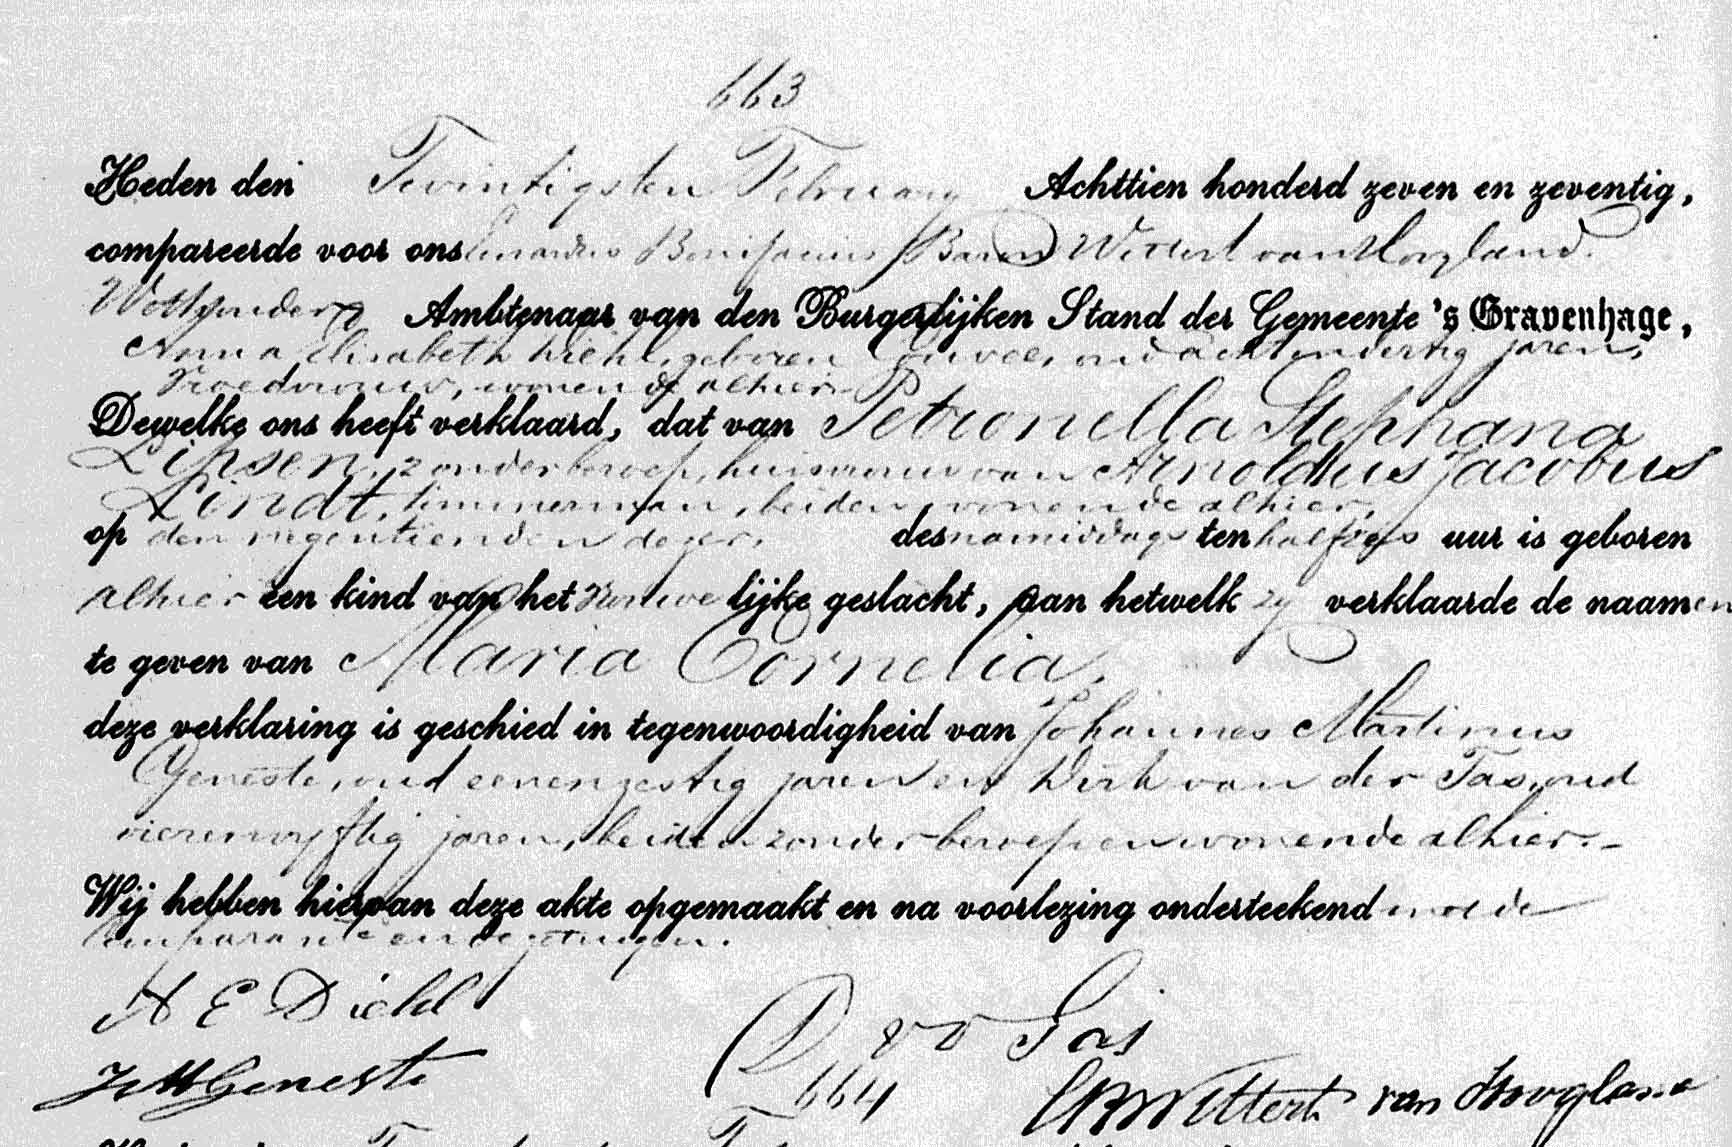 663
Heden den Twintigsten February Achttien honderd zeven en zeventig,
compareerde voor ons Bonifacius Baron Wittert van Hoogland.
Wethouder Ambtenaar van den Burgerlijken Stand der Gemeente 's Gravenhage,
Anna Elisabeth Diehl, geboren oud achtendertig jaren,
Vroedvrouw, wonende alhier
Dewelke ons heeft verklaard, dat van Petronella Stephana
Lipsen, zonder beroep, huisvrouw van Arnoldus Jacobus
Lindt, timmerman, beiden wonende alhier,
op den negentienden dezer, des namiddags ten half zes uur is geboren
alhier een kind van het vrouwelijke geslacht, aan hetwelk zy verklaarde de naamen
te geven van Maria Cornelia,
deze verklaring is geschied in tegenwoordigheid van Johannes Martinus
Geneste, oud eenenzestig jaren en Dirk van der Tas, oud
vierenvyftig jaren, beiden zonder beroep en wonende alhier.-
Wij hebben hiervan deze akte opgemaakt en na voorlezing onderteekend met de
Comparante en de getuigen.
A E Diehl
D v D Tas
J M Geneste
664
Wittert van Hoogland